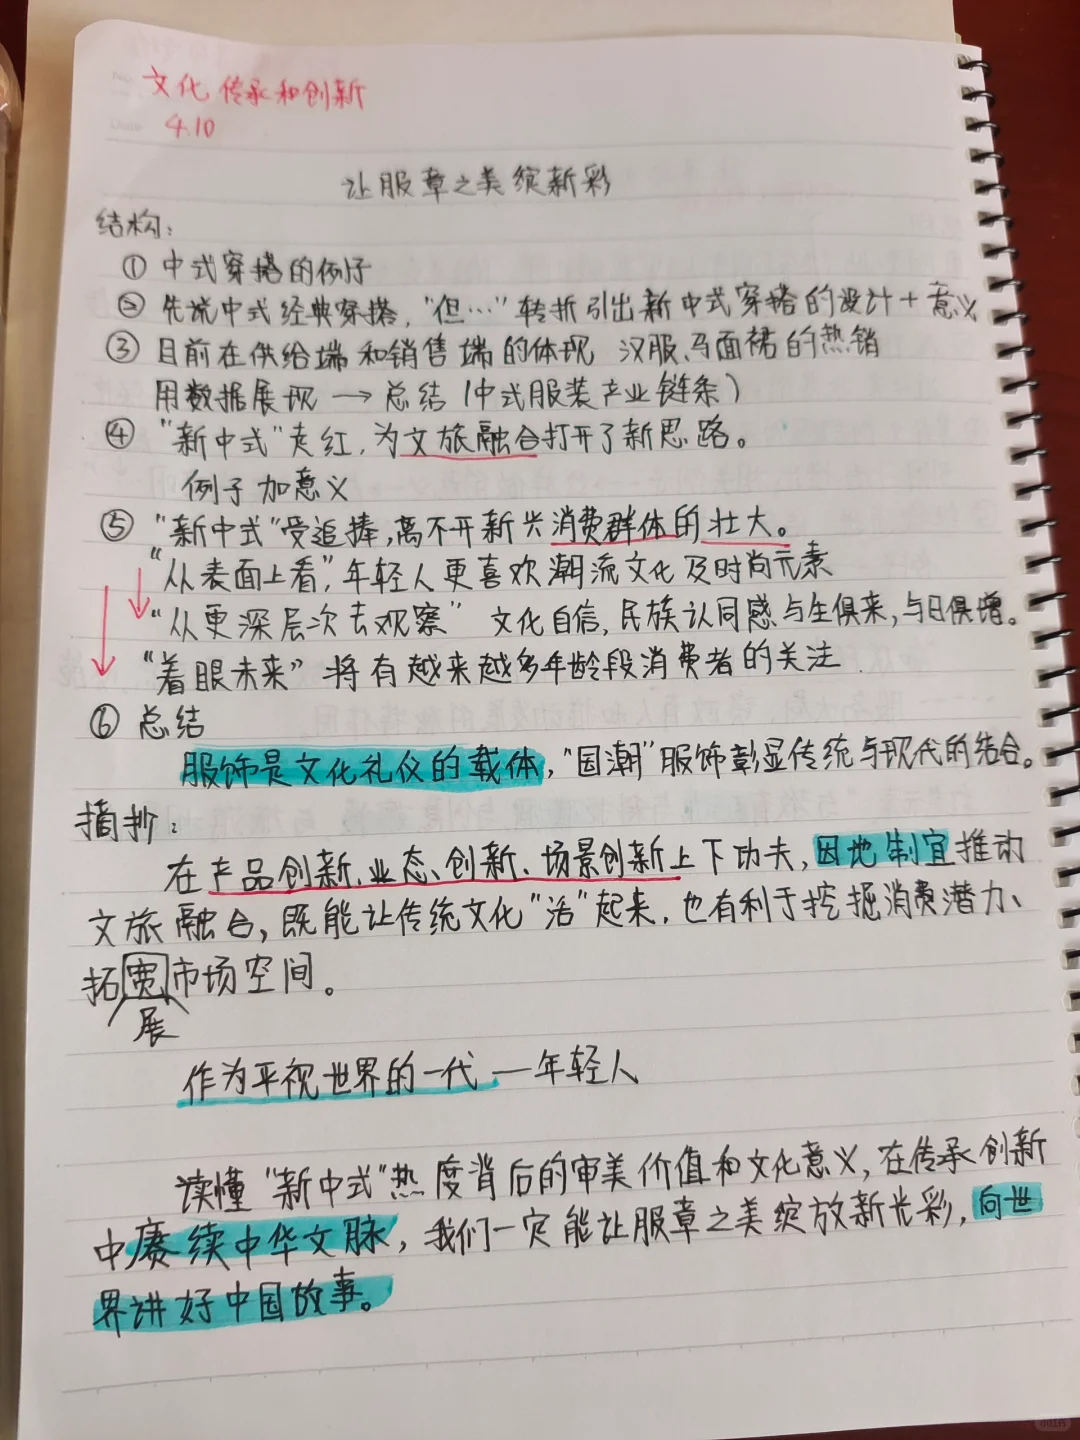 文化传承和创新
4.10
让服章之美绽新彩
结构：
① 中式穿搭的例子
② 先说中式经典穿搭，"但…"转折引出新中式穿搭的设计+意义
③ 目前在供给端和销售端的体现 汉服、马面裙的热销
用数据展现 → 总结（中式服装产业链条）
④ "新中式"走红，为文旅融合打开了新思路。
例子加意义
⑤ "新中式"受追捧，离不开新兴消费群体的壮大。
"从表面上看"，年轻人更喜欢潮流文化及时尚元素
"从更深层次去观察" 文化自信，民族认同感与生俱来，与日俱增。
"着眼未来" 将有越来越多年龄段消费者的关注.
⑥ 总结
服饰是文化礼仪的载体，"国潮"服饰彰显传统与现代的结合。
摘抄：
在产品创新、业态创新、场景创新上下功夫，因地制宜推动
文旅融合，既能让传统文化"活"起来，也有利于挖掘消费潜力、
拓宽市场空间。
展
作为平视世界的一代 —年轻人
读懂"新中式"热度背后的审美价值和文化意义，在传承创新
中赓续中华文脉，我们一定能让服章之美绽放新光彩，向世
界讲好中国故事。